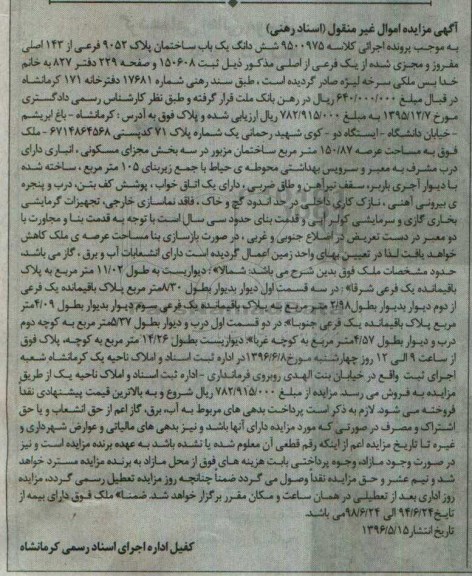 آگهی مزایده اموال غیر منقول (اسناد رهنی)
به موجب پرونده اجرائی کلاسه ۹۵۰۰۹۷۵ شش دانگ یک باب ساختمان پلاک ۹۰۵۲ فرعی از ۱۴۳ اصلی
مفروز و مجزی شده از یک فرعی از اصلی مذکور ذیل ثبت ۱۵۰۶۰۸ و صفحه ۲۲۹ دفتر ۸۲۷ به خانم
خدا بس ملکی سرخه لیژه صادر گردیده است ، طبق سند رهنی شماره ۱۷۶۸۱ دفترخانه ۱۷۱ کرمانشاه
در قبال مبلغ ۶۴۰/۰۰۰/۰۰۰ ریال در رهن بانک ملت قرار گرفته و طبق نظر کارشناس رسمی دادگستری
مورخ ۱۳۹۵/۱۲/۷ به مبلغ ۷۸۲/۹۱۵/۰۰۰ ریال ارزیابی شده و پلاک فوق به آدرس : کرمانشاه - باغ ابریشم
- خیابان دانشگاه - ایستگاه دو - کوی شهید رحمانی یک شماره پلاک ۷۱ کدپستی ۶۷۱۴۸۶۴۵۶۸ - ملک
فوق به مساحت عرصه ۱۵۰/۸۷ متر مربع ساختمان مزبور در سه بخش مجزای مسکونی ، انباری دارای
درب مشرف به معبر و سرویس بهداشتی محوطه ی حیاط با جمع زیربنای ۱۰۵ متر مربع ، ساخته شده
با دیوار آجری باربر، سقف تیرآهن و طاق ضربی ، دارای یک اتاق خواب ، پوشش کف بتن، درب و پنجره
ی بیرونی آهنی ، نازک کاری داخلی در حد اندود گچ و خاک ، فاقد نماسازی خارجی، تجهیزات گرمایشی
بخاری گازی و سرمایشی کولر آبی و قدمت بنای حدود سی سال است با توجه به قدمت بنا و مجاورت با
دو معبر در دست تعریض در اضلاع جنوبی و غربی ، در صورت بازسازی بنا مساحت عرصه ی ملک کاهش
خواهد یافت لذا در تعیین بهای واحد زمین اعمال گردیده است دارای انشعابات آب و برق ، گاز می باشد،
حدود مشخصات ملک فوق بدین شرح می باشد: شمالا: دیواریست به طول ۱۱/۰۲ متر مربع به پلاک
باقیمانده یک فرعی شرقا: در سه قسمت اول دیوار بدیوار بطول ۸/۳۰متر مربع پلاک باقیمانده یک فرعی
از دوم دیوار بدیوار بطول۲/۹۸ متر مربع به پلاک باقیمانده یک فرعی سوم دیوار بدیوار بطول ۴/۰۹متر
مربع پلاک باقیمانده یک فرعی جنوبا: در دو قسمت اول درب و دیوار بطول ۵/۳۷متر مربع به کوچه دوم
درب و دیوار بطول ۴/۵۷متر مربع به کوچه غربا: دیواریست بطول ۱۴/۲۶ متر مربع به کوچه، پلاک فوق
از ساعت ۹ الی ۱۲ روز چهارشنبه مورخ۱۳۹۶/۶/۸در اداره ثبت اسناد و املاک ناحیه یک کرمانشاه شعبه
اجرای ثبت واقع در خیابان بنت الهدی روبروی فرمانداری - اداره ثبت اسناد و املاک ناحیه یک از طریق
مزایده به فروش می رسد. مزایده از مبلغ ۷۸۲/۹۱۵/۰۰۰ ریال شروع و به بالاترین قیمت پیشنهادی نقدا
فروخته می شود. لازم به ذکر است پرداخت بدهی های مربوط به آب، برق، گاز اعم از حق انشعاب و یا حق
اشتراک و مصرف در صورتی که مورد مزایده دارای آنها باشد و نیز بدهی های مالیاتی و عوارض شهرداری و
غیره تا تاریخ مزایده اعم از اینکه رقم قطعی آن معلوم شده یا نشده باشد به عهده برنده مزایده است و نیز
در صورت وجود مازاد، وجوه پرداختی بابت هزینه های فوق از محل مازاد به برنده مزایده مسترد خواهد
شد و نیم عشر و حق مزایده نقدا وصول می گردد ضمنا چنانچه روز مزایده تعطیل رسمی گردد، مزایده
روز اداری بعد از تعطیلی در همان ساعت و مکان مقرر برگزار خواهد شد. ضمنا ملک فوق دارای بیمه از
تاریخ۹۴/۶/۲۴ الی ۹۸/۶/۲۴می باشد.
تاریخ انتشار۱۳۹۶/۵/۱۵
کفیل اداره اجرای اسناد رسمی کرمانشاه